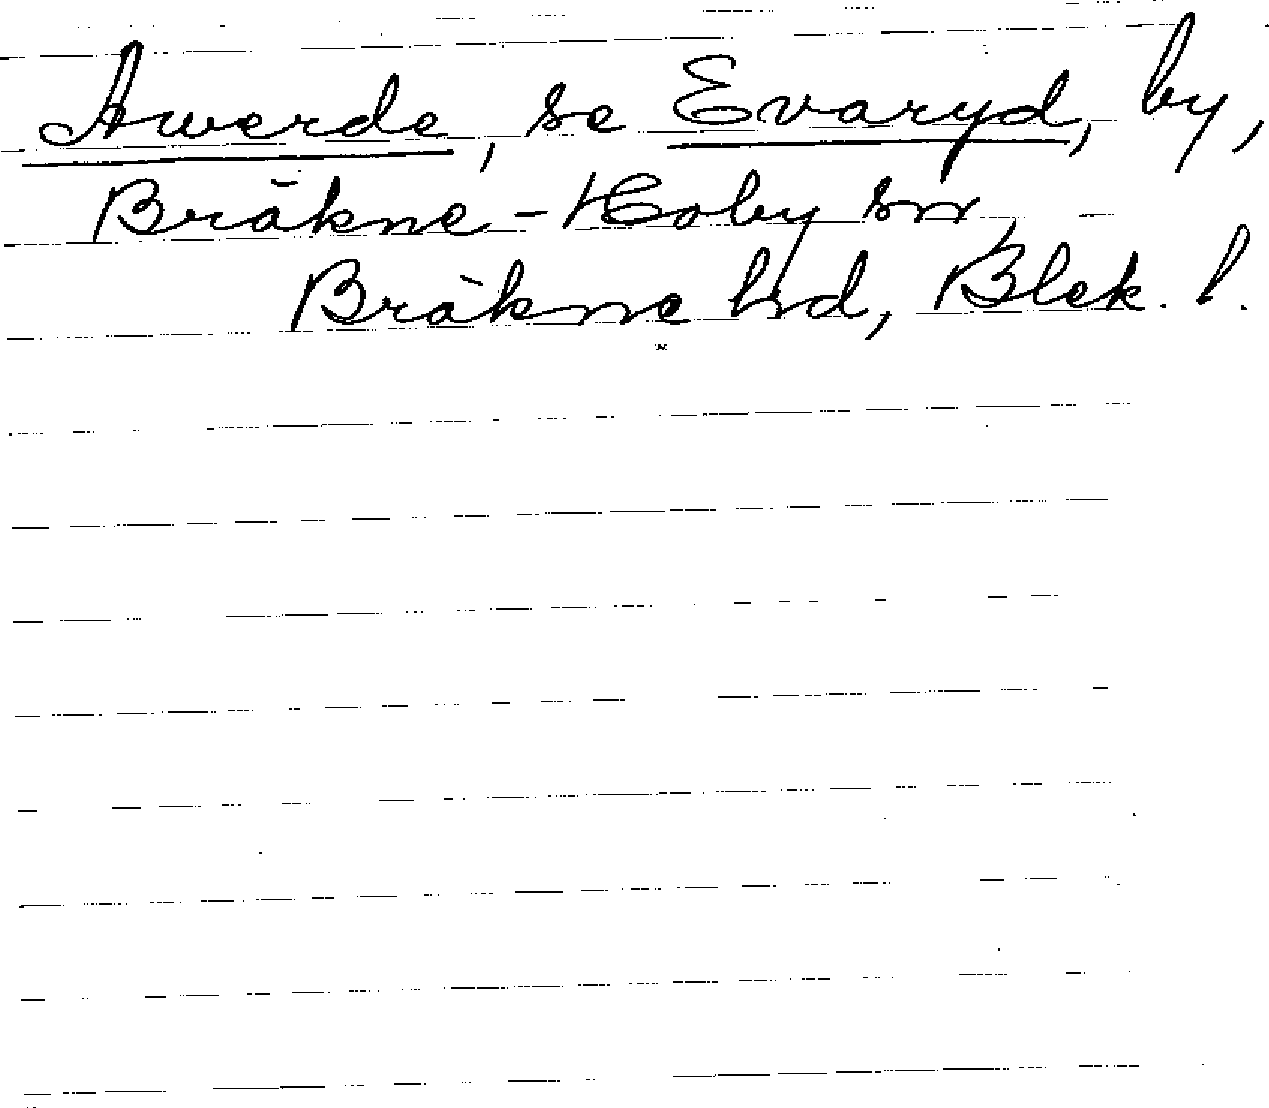 Awerde, se Evaryd, by,
Bräkne-Hoby sn,
Bräkne hd, Blek. l.